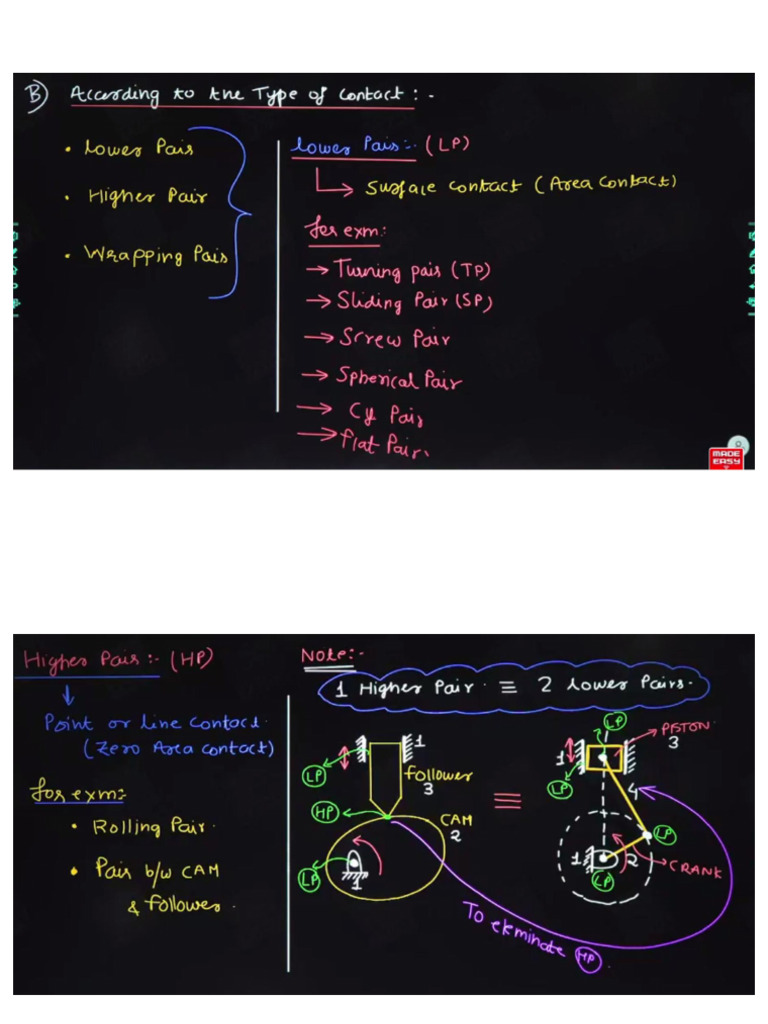 B) According to the Type of Contact : -
• Lower Pair
• Higher Pair
• Wrapping Pair
Lower Pair :- (LP)
Surface contact (Area contact)
for exm:
→ Turning pair (TP)
→ Sliding Pair (SP)
→ Screw Pair
→ Spherical Pair
→ Cy Pair
→ flat Pair.
MADE
EASY
Higher Pair :- (HP)
Point or line contact.
(Zero Area contact)
for exm:-
• Rolling Pair.
• Pair b/w CAM
& follower.
Note:-
1 Higher Pair. ≡ 2 lower Pairs.
1
LP
follower
3
HP
CAM
2
LP
1
≡
LP
PISTON
3
1
LP
4
LP
1
2
CRANK
LP
To eleminate HP.